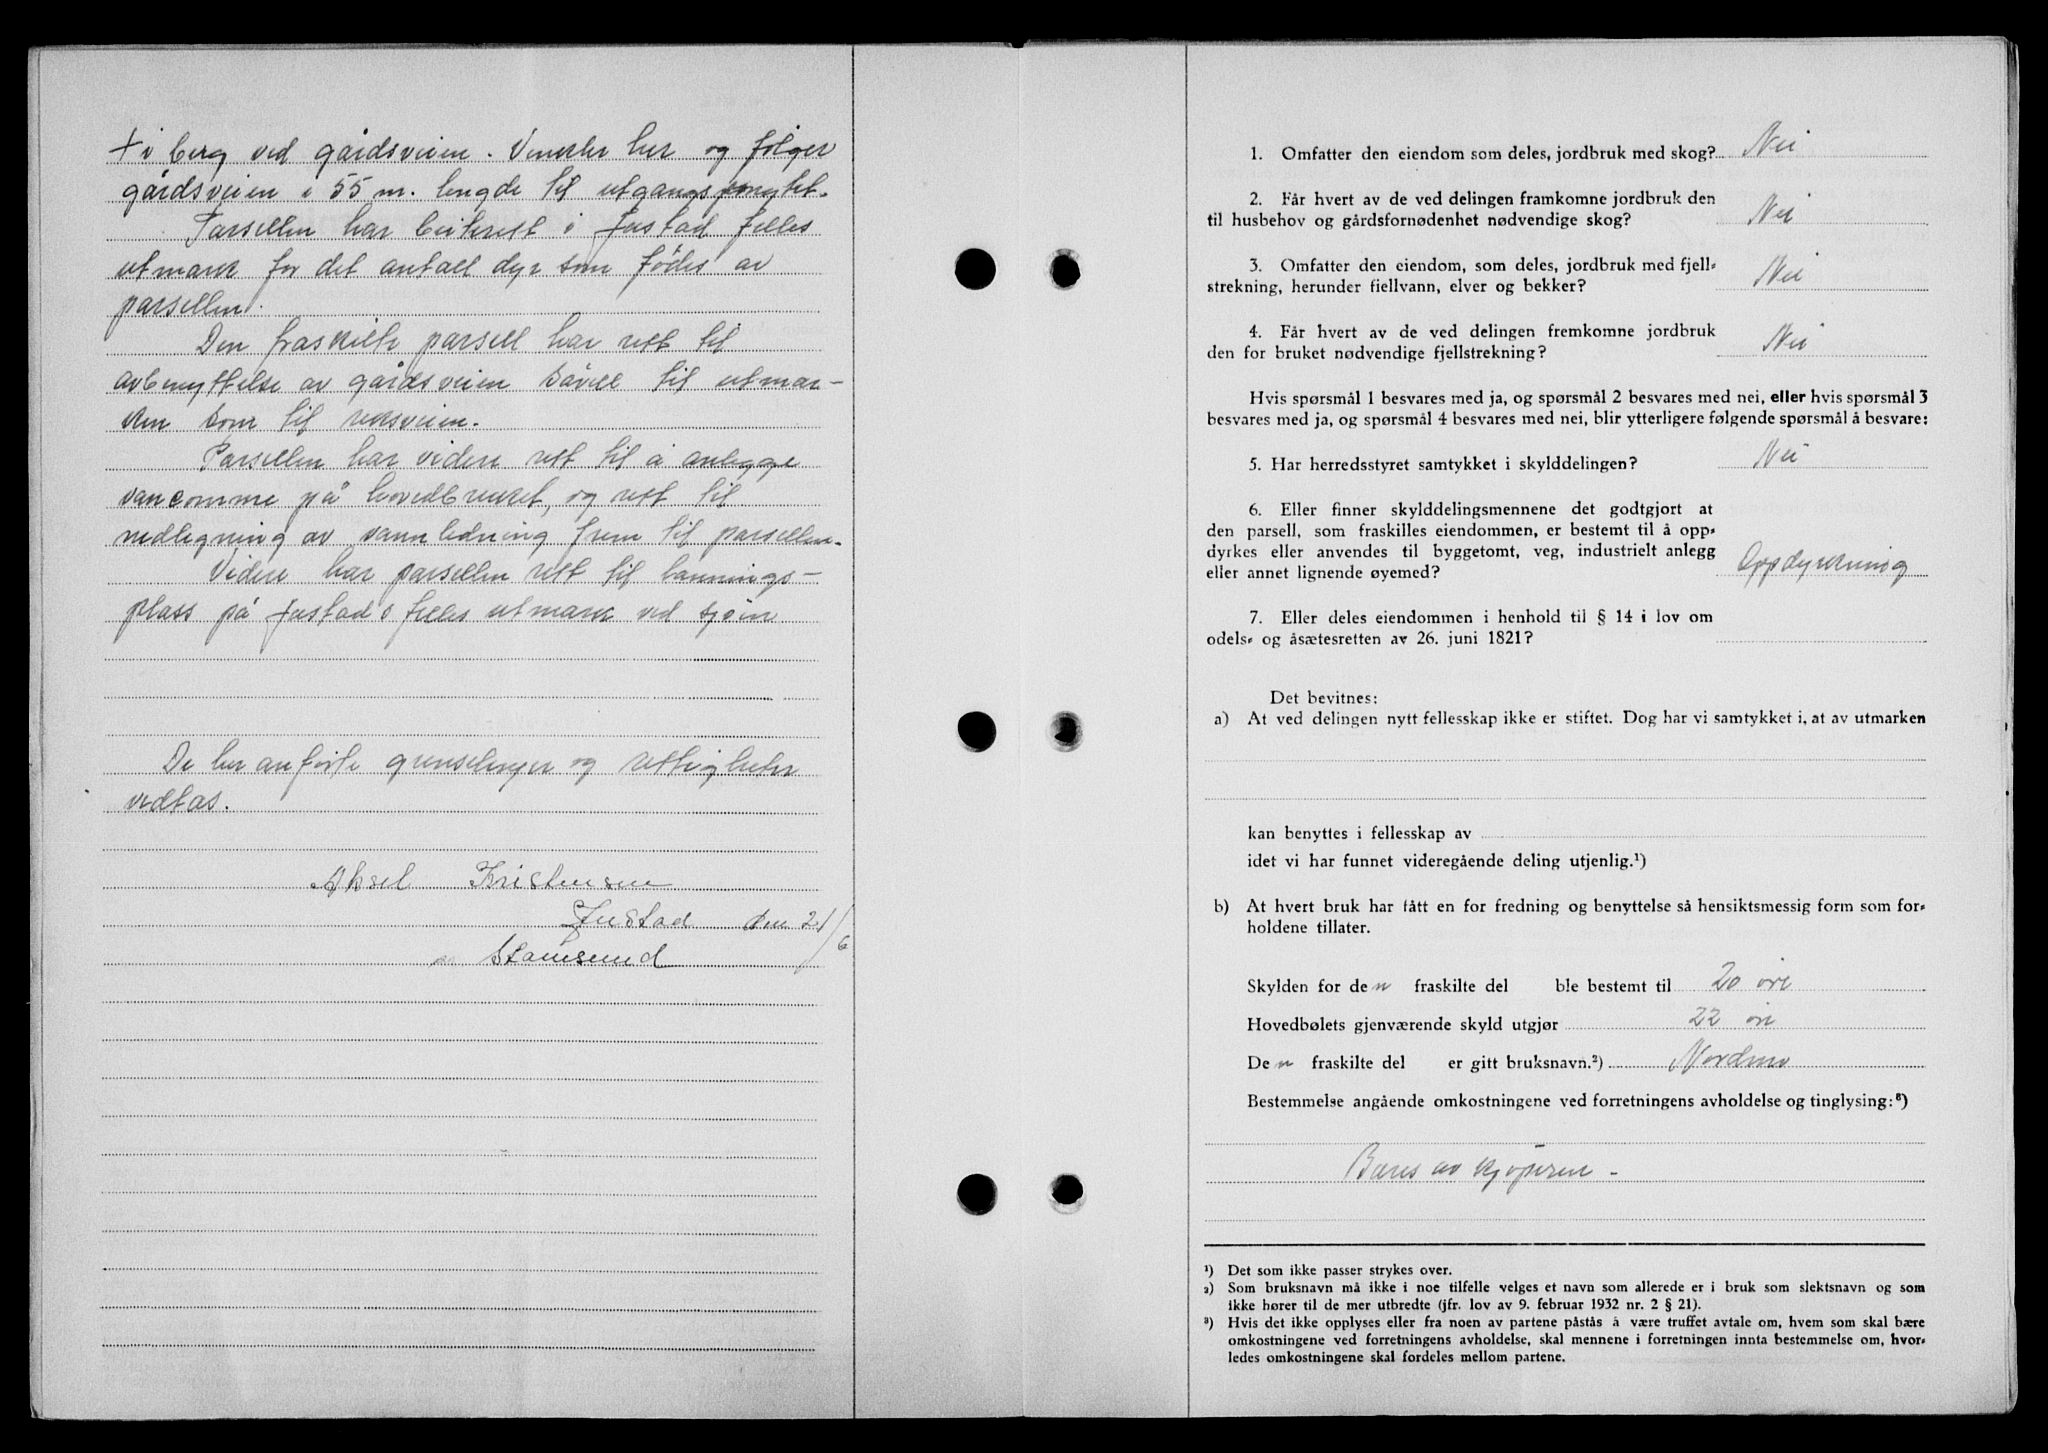 + i berg ved gårdsveien. Vinkler her og følger
gårdsveien i 55 m. lengde til utgangspunktet.
Parsellen har beiterett i Justad felles
utmark for det antall dyr som fødes av
parsellen.
Den fraskilte parsell har rett til
avbenyttelse av gårdsveien såvel til utmar-
ken som til riksveien.
Parsellen har videre rett til å anlegge
vankomme på hovedbruket, og rett til
nedlegning av vannledning frem til parsellen.
Videre har parsellen rett til
plass på Justad's felles utmark ved sjøen
De her anførte grenselinjer og rettigheter
vedtas.
Aksel Kristensen
Justad den 21/6
Stamsund
1. Omfatter den eiendom som deles, jordbruk med skog? Nei
2. Får hvert av de ved delingen framkomne jordbruk den
til husbehov og gårdsfornødenhet nødvendige skog? Nei
3. Omfatter den eiendom, som deles, jordbruk med fjell-
strekning, herunder fiellvann, elver og bekker? Nei
4. Får hvert av de ved delingen fremkomne jordbruk
den for bruket nødvendige fjellstrekning? Nei
Hvis spørsmål 1 besvares med ja, og spørsmål 2 besvares med nei, eller hvis spørsmål 3
besvares med ja, og spørsmål 4 besvares med nei, blir ytterligere følgende spørsmål å besvare:
5. Har herredsstyret samtykket i skylddelingen? Nei
6. Eller finner skylddelingsmennene det godtgjort at
den parsell, som fraskilles eiendommen, er bestemt til å opp-
dyrkes eller anvendes til byggetomt, veg, industrielt anlegg
eller annet lignende øyemed? Oppdyrkning
7. Eller deles eiendommen i henhold til § 14 i lov om
odels- og åsætesretten av 26. juni 1821?
Det bevitnes:
a) At ved delingen nytt fellesskap ikke er stiftet. Dog har vi samtykket i, at av utmarken
kan benyttes i fellesskap av
idet vi har funnet videregående deling utjenlig.¹)
b) At hvert bruk har fått en for fredning og benyttelse så hensiktsmessig form som for-
holdene tillater.
Skylden for den fraskilte del ble bestemt til 20 øre
Hovedbølets gjenværende skyld utgjør 22 øre
Den fraskilte del er gitt bruksnavn.²) Nordmo
Bestemmelse angående omkostningene ved forretningens avholdelse og tinglysing:³)
Bæres av kjøperen -
¹) Det som ikke passer strykes over.
²) Som bruksnavn må ikke i noe tilfelle velges et navn som allerede er i bruk som slektsnavn og som
ikke hører til de mer utbredte (jfr. lov av 9. februar 1932 nr. 2 § 21).
³) Hvis det ikke opplyses eller fra noen av partene påstås å være truffet avtale om, hvem som skal bære
omkostningene ved forretningens avholdelse, skal mennene i forretningen innta bestemmelse om, hvor-
ledes omkostningene skal fordeles mellom partene.